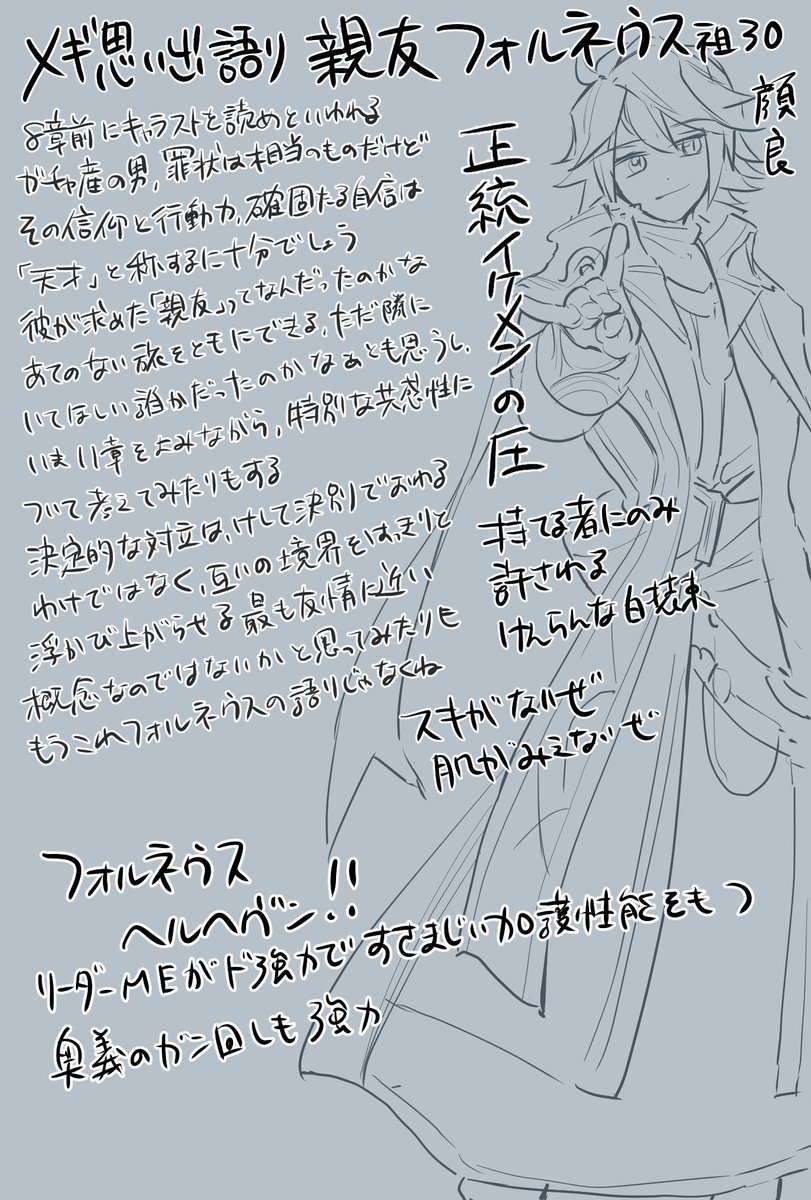 メギ思い出語り 親友フォルネウス祖30
顔良
8章前にキャラストを読めといわれる
ガチャ産の男、罪状は相当のものだけど
その信仰と行動力、確固たる自信は
「天才」と称するに十分でしょう
彼が求めた「親友」ってなんだったのかな
あてのない旅をともにできる、ただ隣に
いてほしい誰かだったのかなぁとも思うし、
いま11章をよみながら、特別な共感性に
ついて考えてみたりもする
決定的な対立は、けして決別でおわる
わけではなく、互いの境界をはっきりと
浮かび上がらせる最も友情に近い
概念なのではないかと思ってみたりも
もうこれフォルネウスの語りじゃなくね
正統イケメンの圧
持てる者にのみ
許される
けんらんな白装束
スキがないぜ
肌がみえないぜ
フォルネウス
ヘルヘヴン!!
リーダーMEがド強力ですさまじい加護性能をもつ
奥義のガン回しも強力